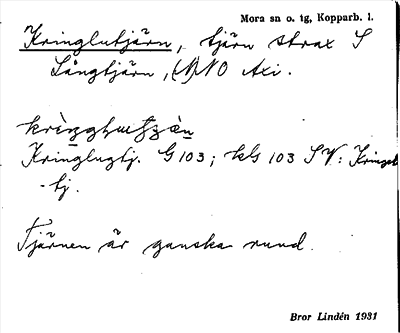 Mora sn o. tg, Kopparb. l.
Kringlutjärn, tjärn strax S
Långtjärn, (N)NO Axi.
Kringlugtj. G 103; kls 103 SV: Kringel-
-tj.
Tjärnen är ganska rund.
Bror Lindén 1931